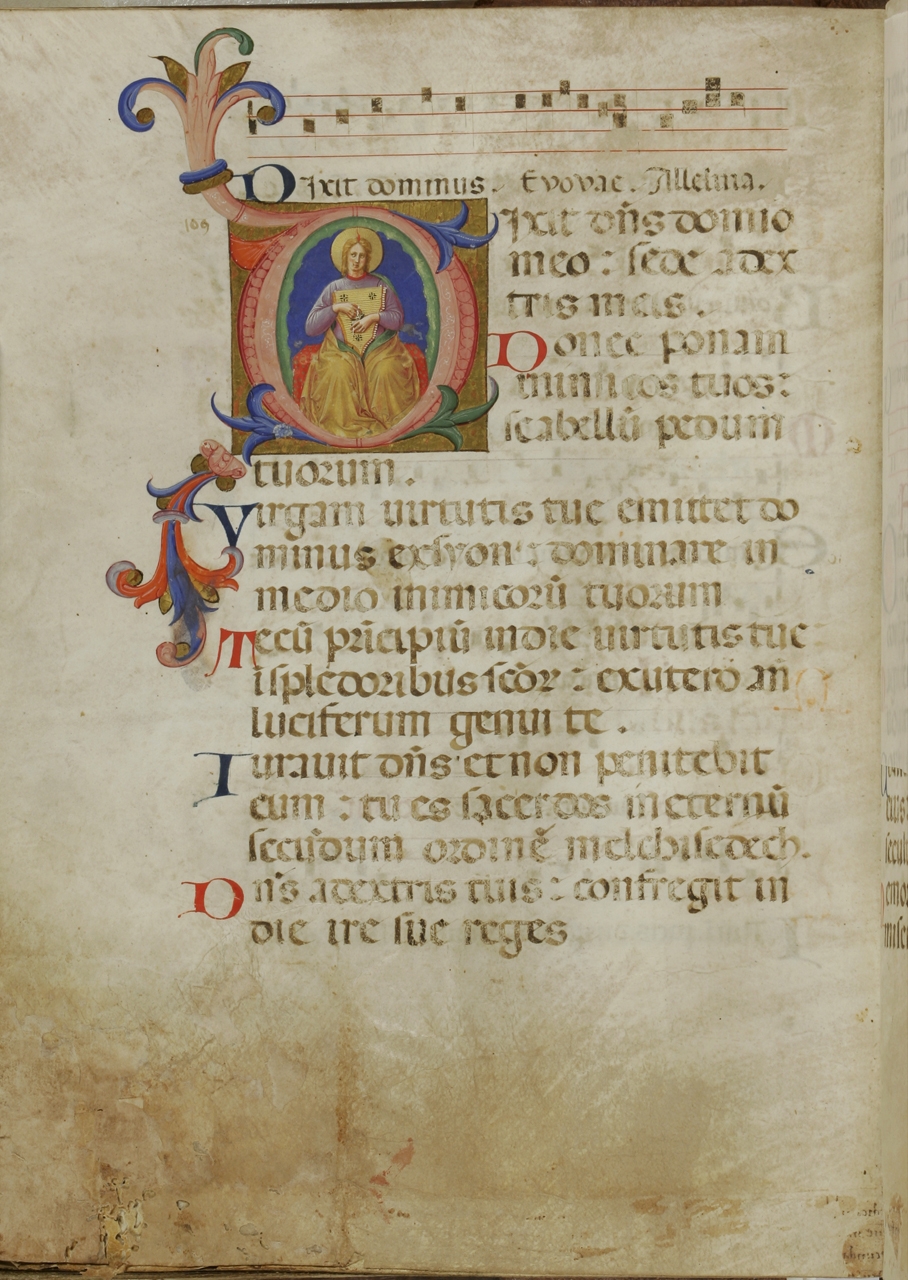 Dixit dominus. Evovae. Alleluia.
109
Dixit dn̄s domino
meo : sede adex
tris meis.
Donec ponam
inimicos tuos :
scabellū pedum
tuorum.
Virgam virtutis tue emittet do
minus exsyon : dominare in
medio inimicorū tuorum
Tecū prīcipiū indie virtutis tue
ī splēdoribus scōr : exutero an̄
luciferum genui te.
Iuravit dn̄s et non penitebit
eum : tu es sacerdos in eternū
secūdum ordinē melchisedech.
Dn̄s adextris tuis : confregit in
die ire sue reges